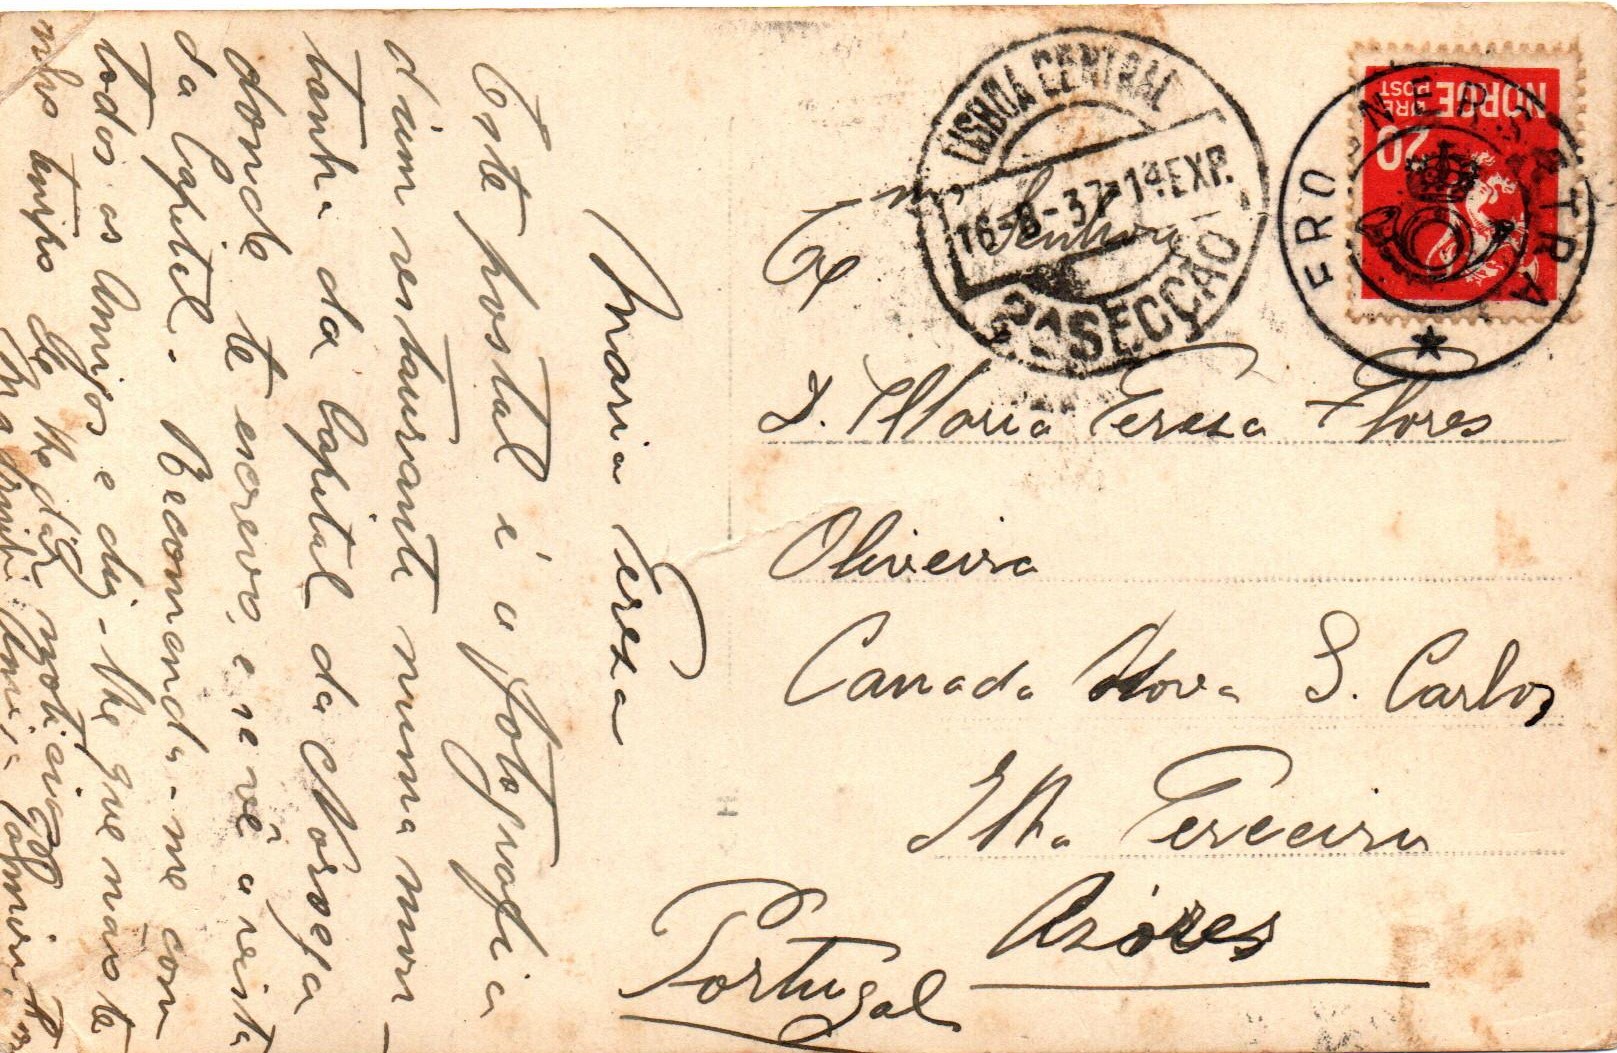 Maria Teresa
Este postal é a fotografia
dum restaurante numa mon-
tanha da Capital da Noroega
donde te escrevo, e se vê a vista
da Capital. Recomenda-me com
todos os Amigos e diz-lhe que não te
nho tempo de lhe dar noticias
Ex.ma Senhora
D. Maria Teresa Flores
Oliveira
Canada Nova S. Carlos
Ilha Terceira
Açôres
Portugal
LISBOA CENTRAL
16-8-37-1ª.EXP.
2ªSECÇÃO
NORGE
ØRE
POST
20
FROGNERSETRA
H